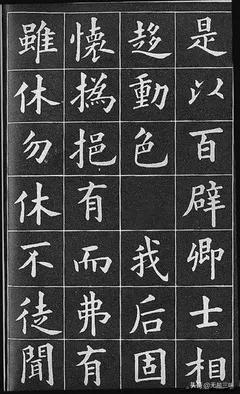 是以百辟卿士相
趍動色我后固
懷撝挹有而弗有
雖休勿休不徒聞